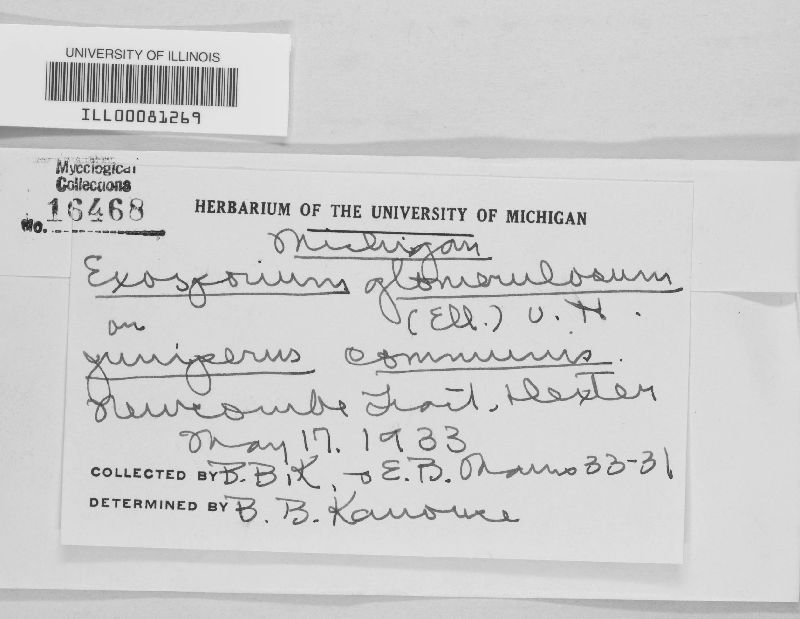 UNIVERSITY OF ILLINOIS
ILL00081269
Mycological
Collections
No. 16468
HERBARIUM OF THE UNIVERSITY OF MICHIGAN
Michigan
Exosporium glomerulosum
(Ell.) v. H.
on
juniperus communis.
Newcombe Trait, Dexter
May 17. 1933
COLLECTED BY B. B. K. & E. B. Mains 33-31
DETERMINED BY B. B. Kanouse